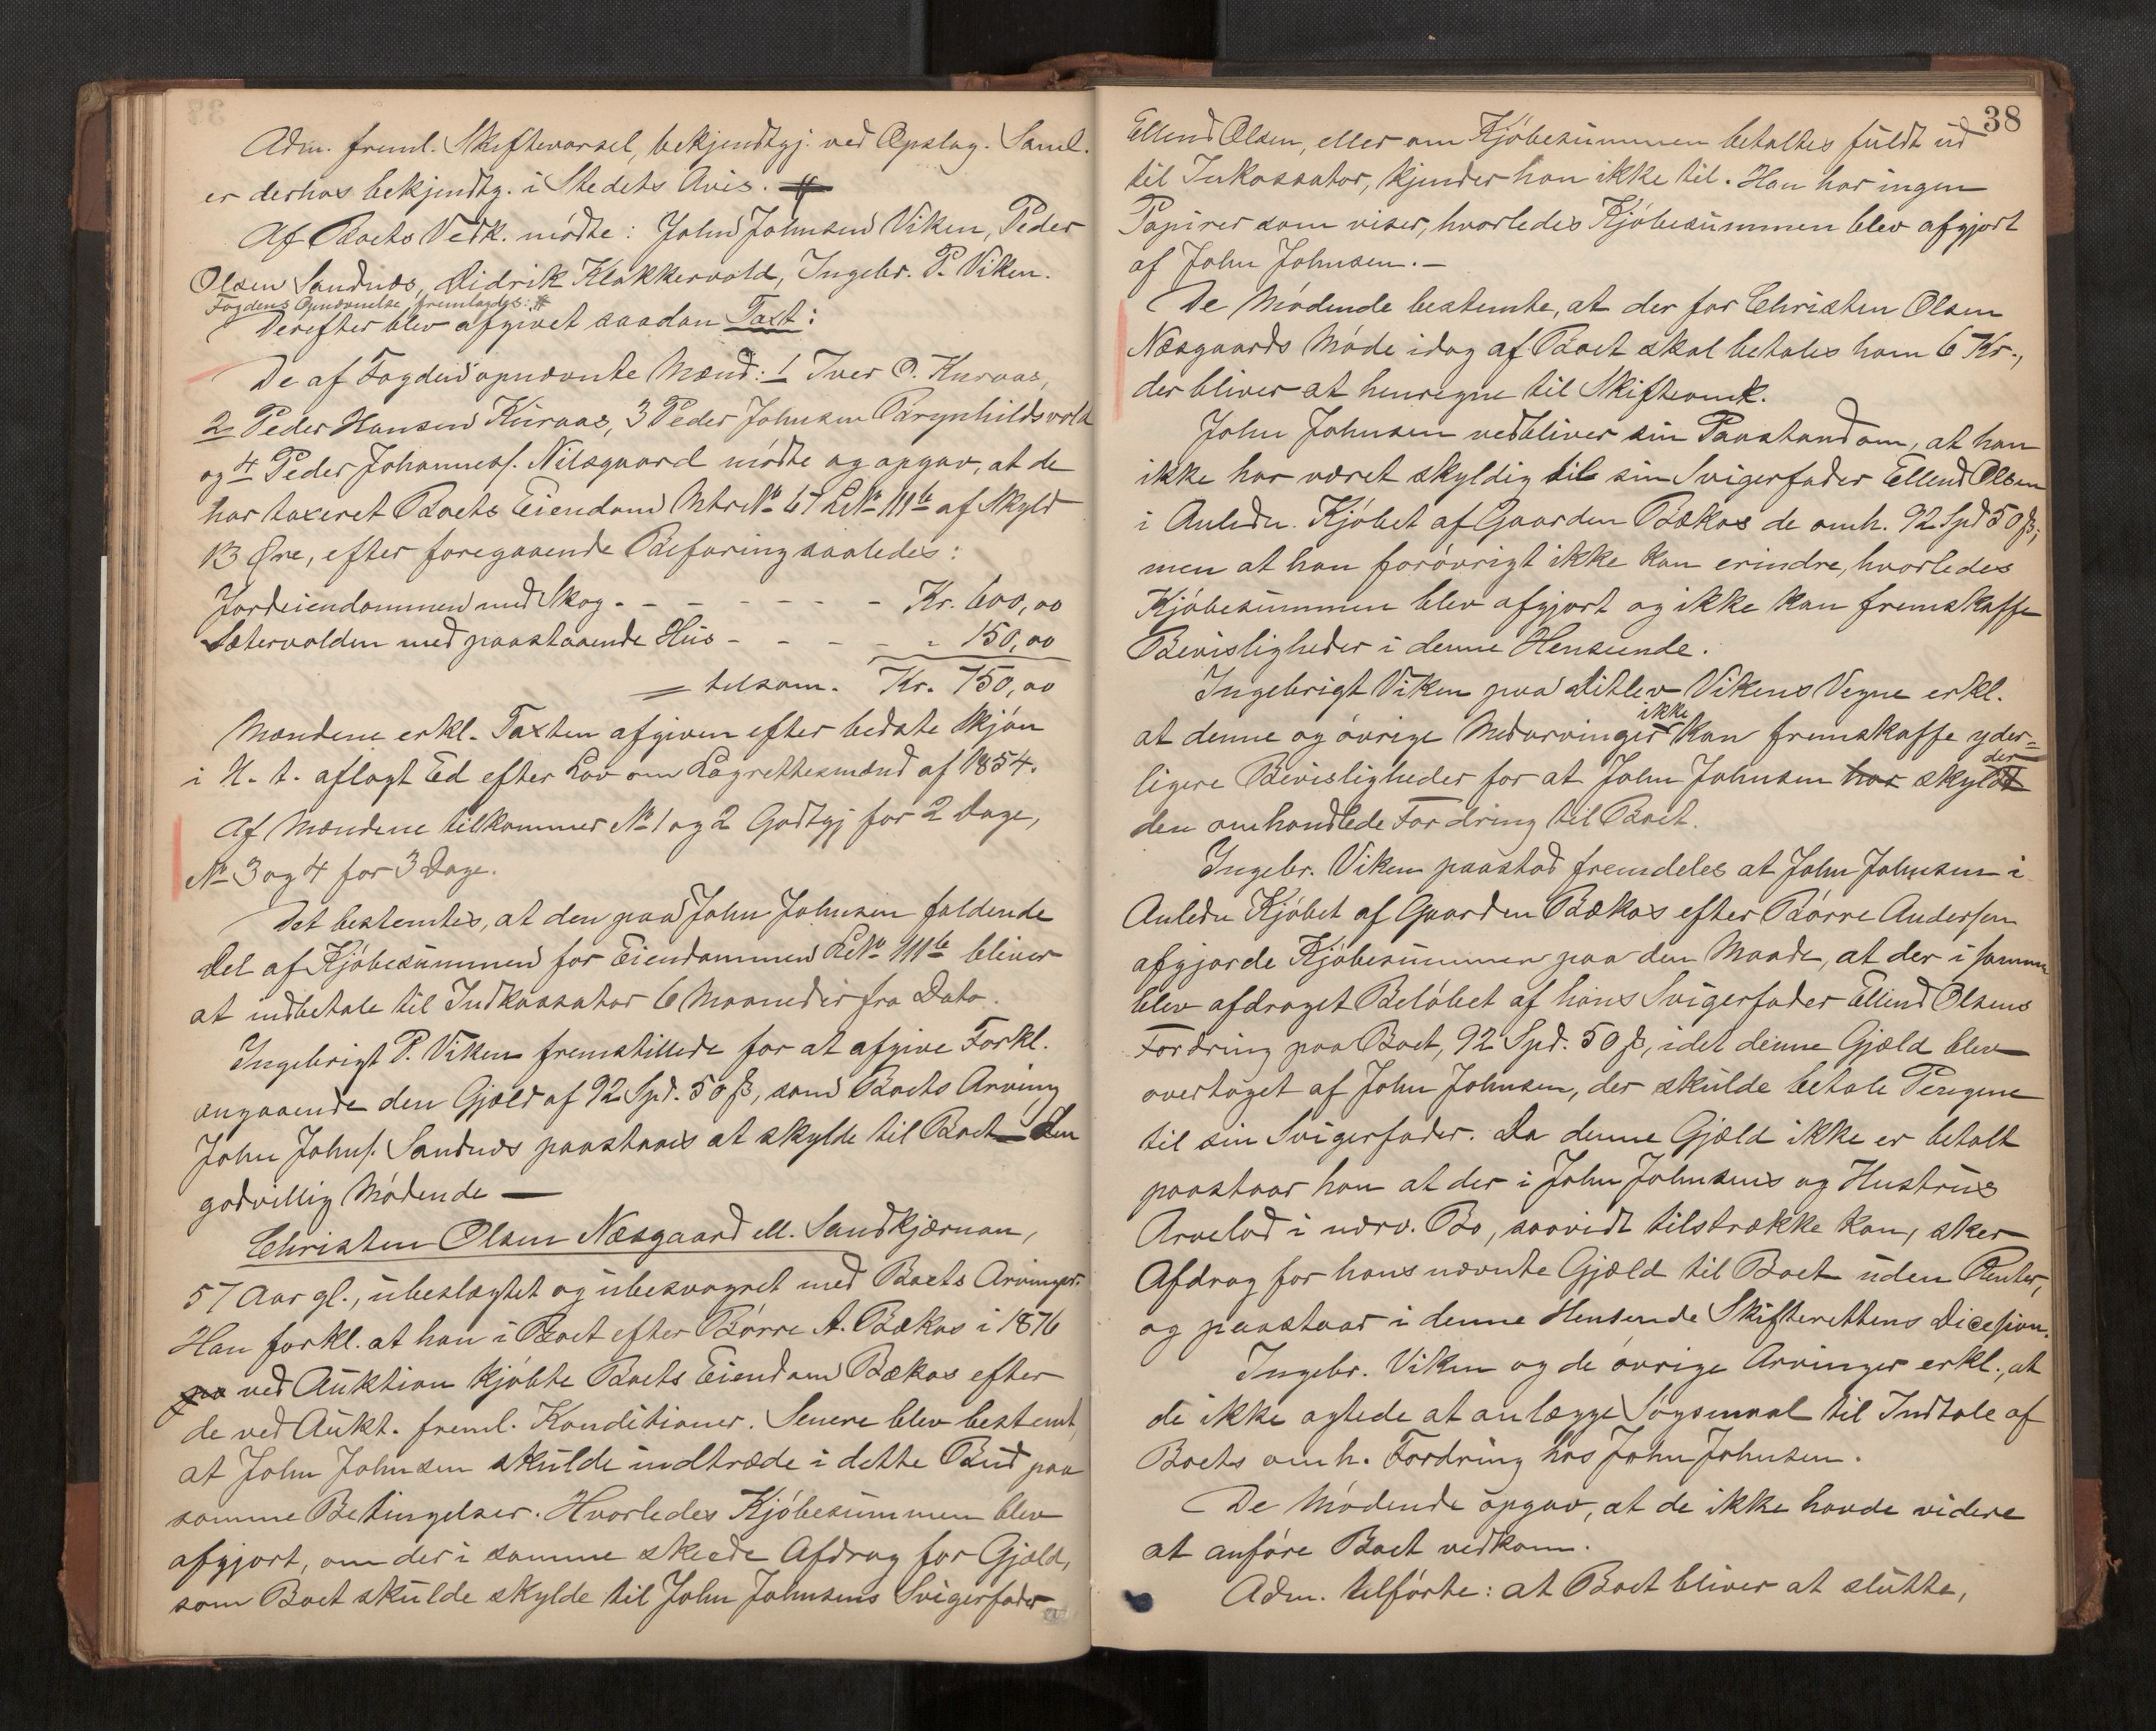 Adm. freml. Skiftevarsel, bekjendtgj. ved Opslag. Saml.
er derhos bekjendtg. i Stedets Avis.
Af Boets Vedk. mødte: John Johnsen Viken, Peder
Olsen Sandnæs, Didrik Klokkervold, Ingebr. P. Viken.
Fogdens Opnævnelse fremlagdes: #
Derefter blev afgivet saadan Taxt:
De af Fogden opnævnte Mænd: 1 Iver O. Kuraas,
2 Peder Hansen Kuraas, 3 Peder Johnsen Brynhildsvold
og 4 Peder Johannesf. Nilsgaard mødte og opgav, at de
har taxeret Boets Eiendom Mtr No 67 LNo 111b af Skyld
13 Øre, efter foregaaende Befaring saaledes:
Jordeiendommen med Skog - - - - - - - Kr. 600,00
Sætervolden med paastaaende Hus - - - - - 150,00
= tilsam. Kr. 750,00
Mændene erkl. Taxten afgiven efter bedste Skjøn
i H. t. aflagt Ed efter Lov om Lagrettesmænd af 1854.
Af Mændene tilkommer No 1 og 2 Godtgj for 2 Dage,
No 3 og 4 for 3 Dage.
Det bestemtes, at den paa John Johnsen faldende
Del af Kjøbesummen for Eiendommen LNo 111b bliver
at indbetale til Indkassator 6 Maaneder fra Dato.
Ingebrigt P. Viken fremstillede for at afgive Forkl.
angaaende den Gjæld af 92 Spd. 50 ß, som Boets Arving
John Johns. Sandnæs paastaaes at skylde til Boet den
godvillig Mødende —
Christen Olsen Næsgaard ell. Sandkjærnan,
57 Aar gl., ubeslægtet og ubesvogret med Boets Arvinger.
Han forkl. at han i Boet efter Børre A. Bækos i 1876
paa ved Auktion kjøbte Boets Eiendom Bækos efter
de ved Aukt. freml. Konditioner. Senere blev bestemt,
at John Johnsen skulde indtræde i dette Bud paa
samme Betingelser. Hvorledes Kjøbesummen blev
afgjort, om der i samme skeede Afdrag for Gjæld,
som Boet skulde skylde til John Johnsens Svigerfader
38
Ellend Olsen, eller om Kjøbesummen betaltes fuldt ud
til Inkassator, kjender han ikke til. Han har ingen
Papirer som viser, hvorledes Kjøbesummen blev afgjort
af John Johnsen. —
De Mødende bestemte, at der for Christen Olsen
Næsgaards Møde idag af Boet skal betales ham 6 Kr.,
der bliver at henregne til Skifteomk.
John Johnsen vedbliver sin Paastand om, at han
ikke har været skyldig til sin Svigerfader Ellend Olsen
i Anledn. Kjøbet af Gaarden Bækos de omh. 92 Spd 50 ß;
men at han forøvrigt ikke kan erindre, hvorledes
Kjøbesummen blev afgjort og ikke kan fremskaffe
Bevisligheder i denne Henseende.
Ingebrigt Viken paa Ditlev Vikens Vegne erkl.
at denne og øvrige Medarvinger ikke kan fremskaffe yder=
ligere Bevisligheder for at John Johnsen har skylder
den omhandlede Fordring til Boet.
Ingebr. Viken paastod fremdeles at John Johnsen i
Anledn Kjøbet af Gaarden Bækos efter Børre Andersen
afgjorde Kjøbesummen paa den Maade, at der i samme
blev afdraget Beløbet af hans Svigerfader Ellend Olsens
Fordring paa Boet, 92 Spd. 50 ß, idet denne Gjæld blev
overtaget af John Johnsen, der skulde betale Pengene
til sin Svigerfader. Da denne Gjæld ikke er betalt
paastaar han at der i John Johnsens og Hustrus
Arvelod i nærv. Bo, saavidt tilstrække kan, sker
Afdrag for hans nævnte Gjæld til Boet uden Renter,
og paastaar i denne Henseende Skifterettens Dicesion.
Ingebr. Viken og de øvrige Arvinger erkl., at
de ikke agtede at anlægge Søgsmaal til Indtale af
Boets omh. Fordring hos John Johnsen.
De Mødende opgav, at de ikke havde videre
at anføre Boet vedkom.
Adm. tilførte: at Boet bliver at slutte,